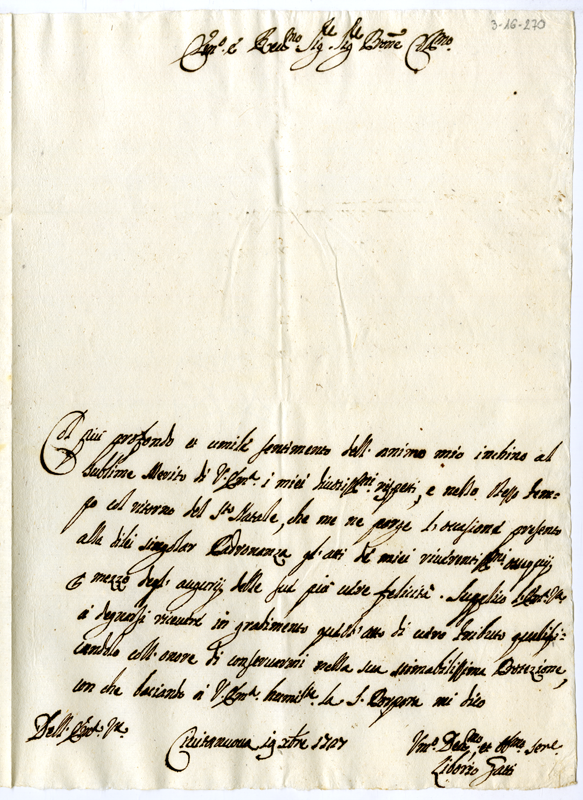 3-16-270
Em.o e Reu.mo Sig.re Sig.re Prône Col.mo
Col più profondo et umile sentimento dell' animo mio inchino al
Sublime Merito di V.ra Em.za i miei diuotiss.mi rispetti, e nello stesso tem-
po col ritorno del S.to Natale, che me ne porge l'occasione presento
alla dilei singolar Padronanza gl' atti de miei riuerentiss.mi ossequij,
p mezzo degl' augurij delle più felicità. Supplico l'Em.za Vr.a
à degnarsi riceuere in gradimento quest' atto di tributo qualifi-
candolo coll' onore di conseruarmi nella sua stimabilissima Protezzione,
con che baciando à V.ra Em.za humilm.te la S. Porpora mi dico
Dell' Em.za Vr.a
Ciuitanuoua 19 Xbre 1727
Vm.o Deu.mo, et Ob.mo Seru.e
Liborio Gatti